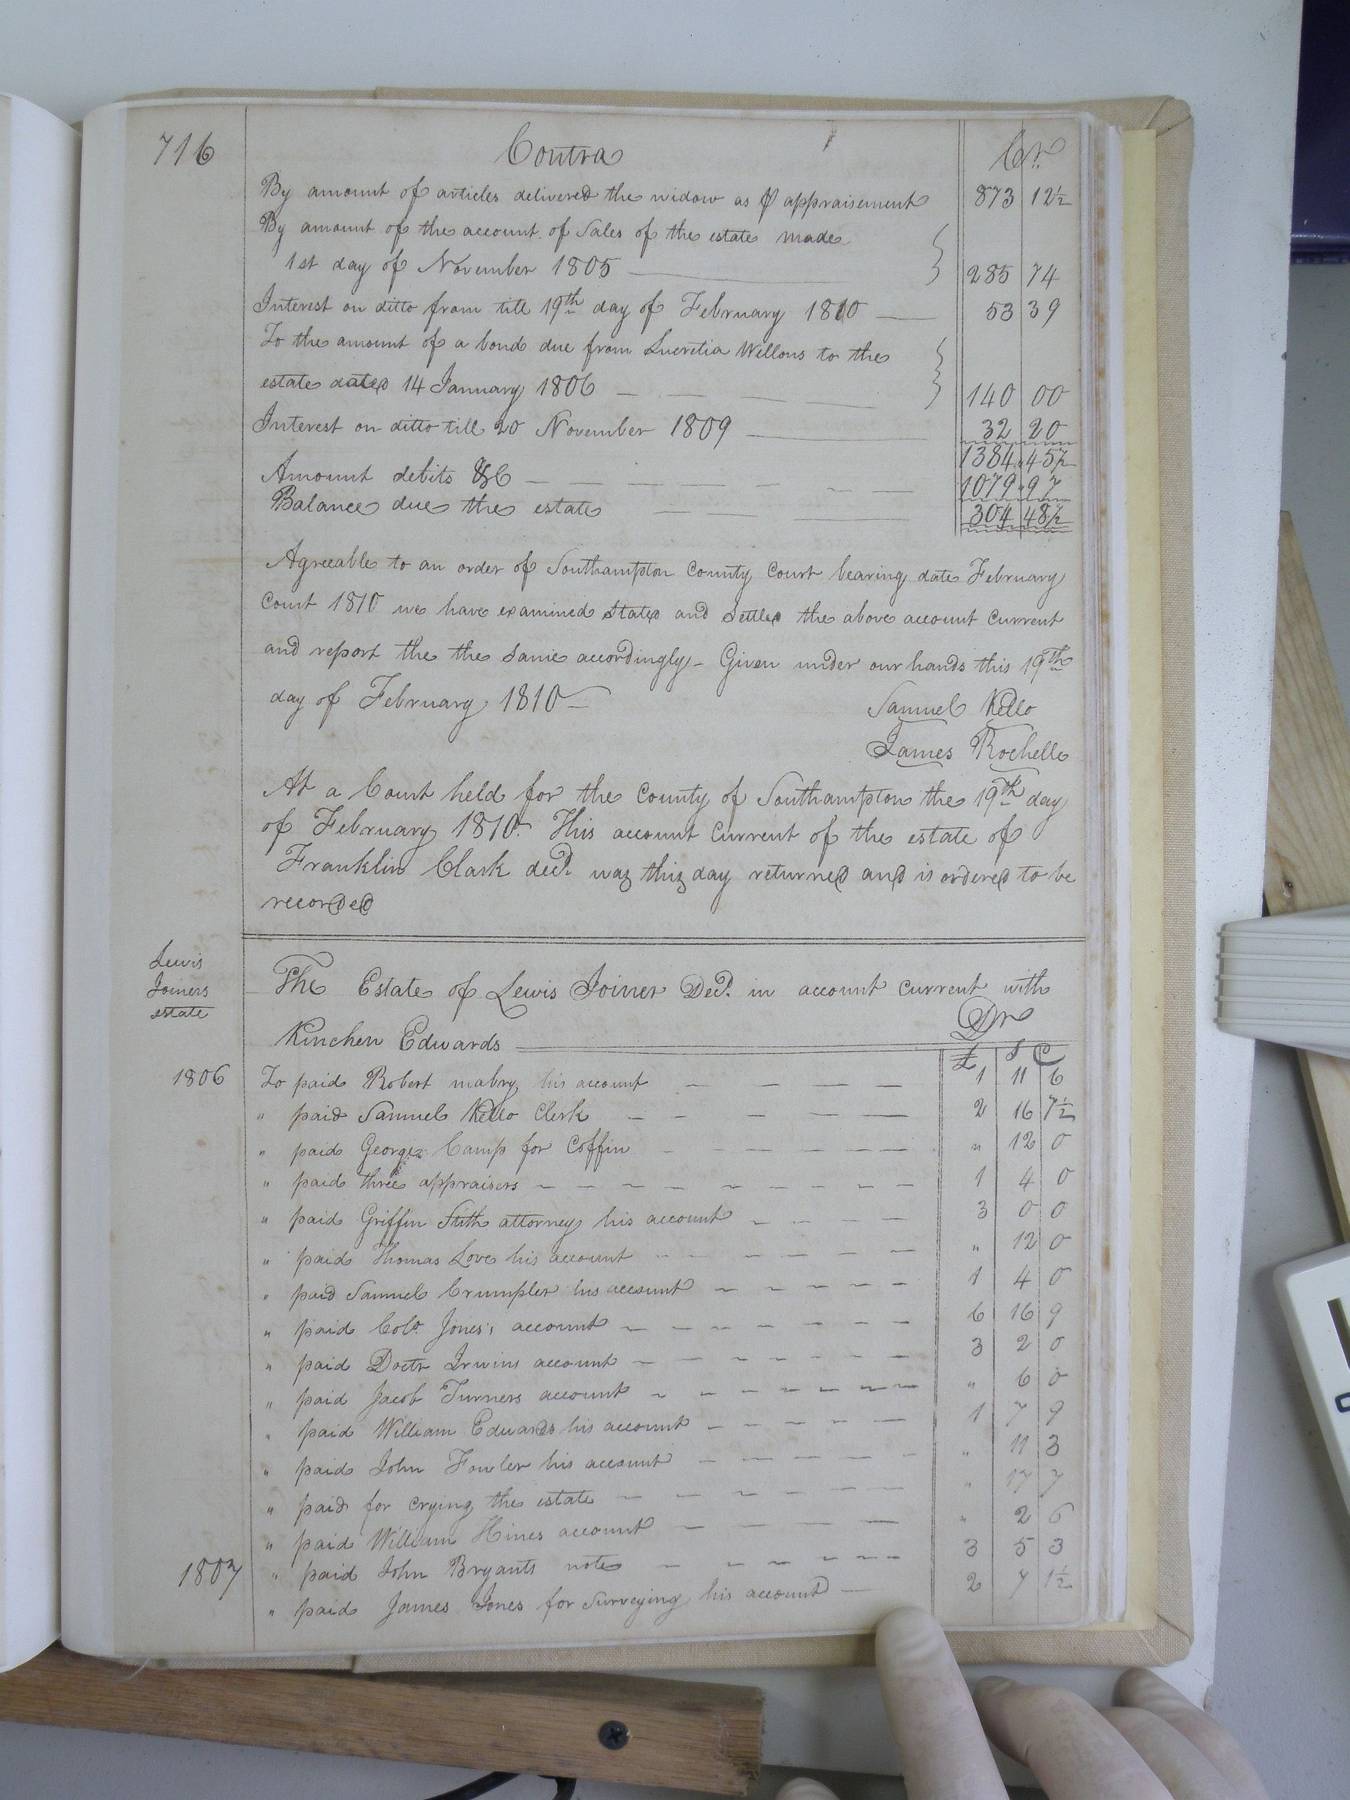 716 Contra Cr.
By amount of articles delivered the widow as ⅌ appraisement 873 12½
By amount of the account of Sales of the estate made
1st day of November 1805 285 74
Interest on ditto from till 19th day of February 1810 53 39
To the amount of a bond due from Lucretia Wellons to the
estate dated 14 January 1806 140 00
Interest on ditto till 20 November 1809 32 20
1384 45½
Amount debits &C 1079 97
Balance due the estate 304 48½
Agreeable to an order of Southampton County Court bearing date February
Court 1810 we have examined stated and settled the above account current
and report the the same accordingly - Given under our hands this 19th
day of February 1810
Samuel Kello
James Rochelle
At a Court held for the County of Southampton the 19th day
of February 1810. This account current of the estate of
Franklin Clark decd. was this day returned and is ordered to be
recorded
Lewis
Joiners
estate
The Estate of Lewis Joiner Decd. in account current with
Kinchen Edwards Dr
£ S
1806 To paid Robert mabry his account 1 11 6
" paid Samuel Kello Clerk 2 16 7½
" paid George Camp for Coffin " 12 0
" paid three appraisers 1 4 0
" paid Griffin Stith attorney his account 3 0 0
" paid Thomas Love his account " 12 0
" paid Samuel Crumpler his account 1 4 0
" paid Colo. Jones's account 6 16 9
" paid Doctr Irwins account 3 2 0
" paid Jacob Turners account " 6 0
" paid William Edwards his account 1 7 9
" paid John Fowler his account " 11 3
" paid for crying the estate " 17 7
" paid William Hines account " 2 6
1807 " paid John Bryants note 3 5 3
" paid James Jones for surveying his account 2 7 1½